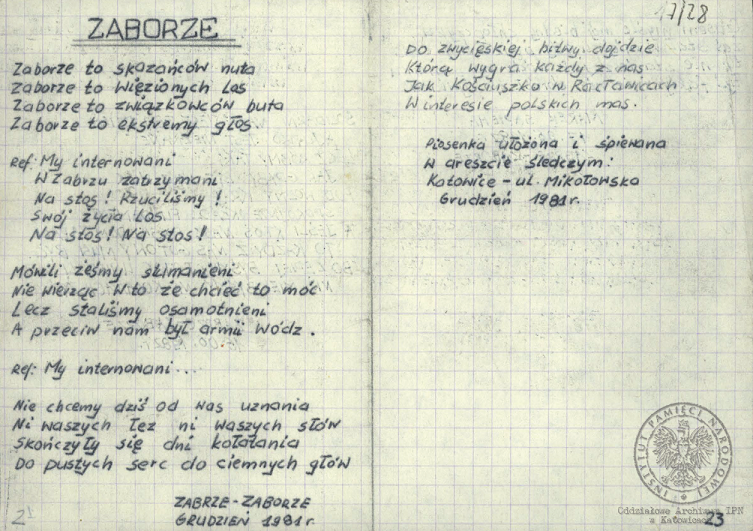 ZABORZE
Zaborze to skazańców nuta
Zaborze to więzionych Los
Zaborze to związkowców buta
Zaborze to ekstremy głos
Ref: My internowani
W Zabrzu zatrzymani
Na stos! Rzuciliśmy!
Swój życia Los
Na stos! Na stos!
Mówili żeśmy stumanieni
Nie wierząc w to że chcieć to móc
Lecz staliśmy osamotnieni
A przeciw nam był armii wódz.
Ref: My internowani...
Nie chcemy dziś od was uznania
Ni waszych łez ni waszych słów
Skończyły się dni kołatania
Do pustych serc do ciemnych głów
ZABRZE - ZABORZE
GRUDZIEŃ 1981 r.
2
17/28
Do zwycięskiej bitwy dojdzie
Którą wygra każdy z nas
Jak Kościuszko w Racławicach
W interesie polskich mas.
Piosenka ułożona i śpiewana
w areszcie śledczym:
Katowice - ul. Mikołowska
Grudzień 1981r.
INSTYTUT PAMIĘCI NARODOWEJ
Oddziałowe Archiwum IPN
w Katowicach
23